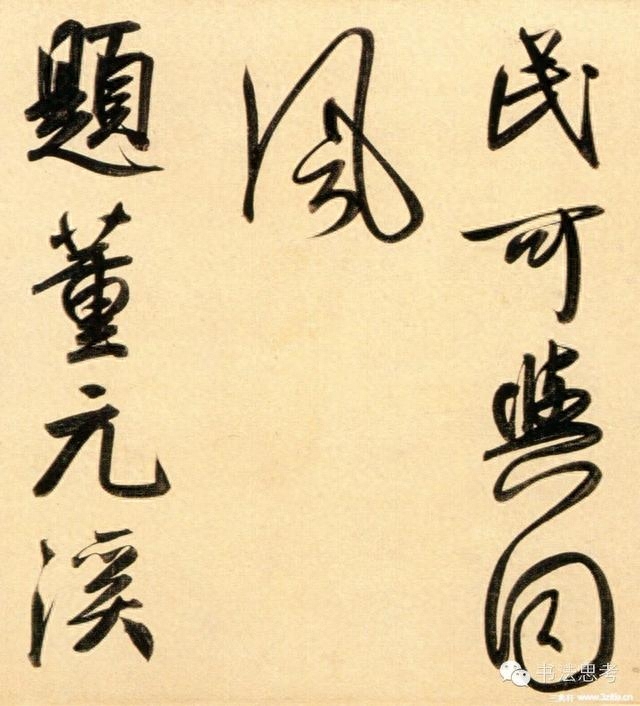 民可與回
風
題董元溪
书法思考
www.3zitie.cn